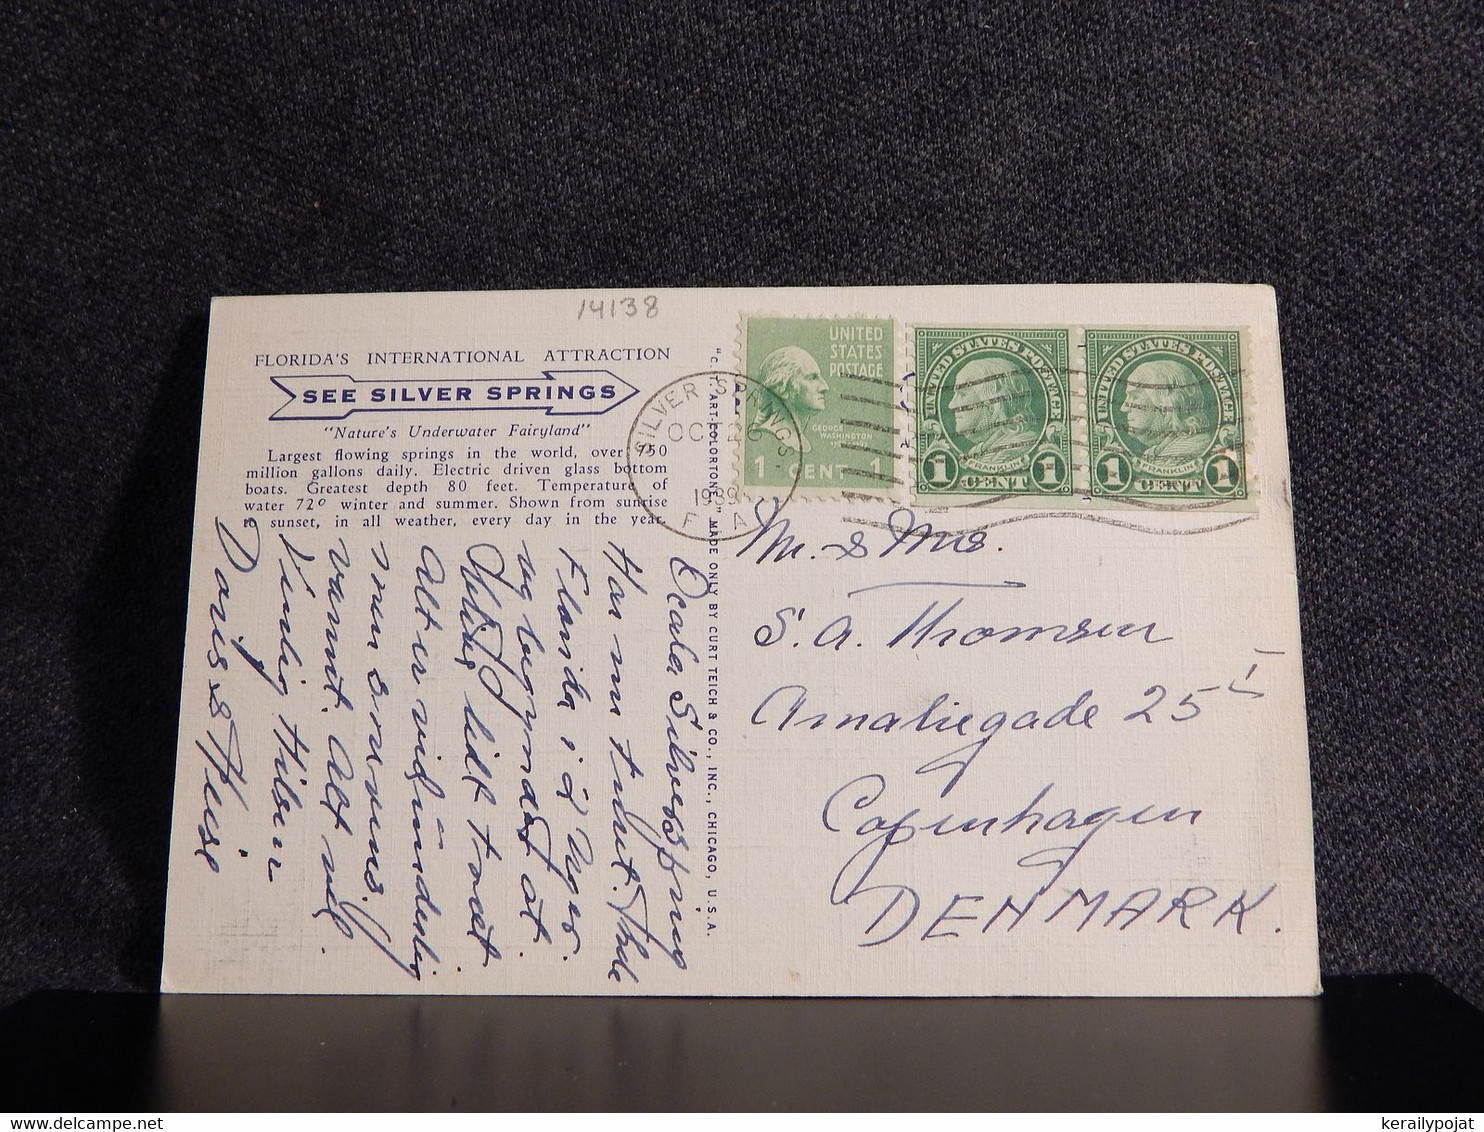 14138
FLORIDA'S INTERNATIONAL ATTRACTION
SEE SILVER SPRINGS
"Nature's Underwater Fairyland"
Largest flowing springs in the world, over 750
million gallons daily. Electric driven glass bottom
boats. Greatest depth 80 feet. Temperature of
water 72º winter and summer. Shown from sunrise
to sunset, in all weather, every day in the year.
"C. T. ART-COLORTONE" MADE ONLY BY CURT TEICH & CO., INC., CHICAGO, U.S.A.
SILVER SPRINGS.
OCT 6
1939
FLA
UNITED
STATES
POSTAGE
GEORGE
WASHINGTON
1 CENT 1
UNITED STATES POSTAGE
FRANKLIN
1 CENT 1
UNITED STATES POSTAGE
FRANKLIN
1 CENT 1
Mr. & Mrs.
S. A. Thomsen
Amaliegade 25
Copenhagen
DENMARK.
Ocala Silverspring
Har nu
Florida i 2 Uger
og
lidt trist
Alt er vidunderlig
men
varmt. Alt vel.
Venlig Hilsen
Doris &
kerailypojat